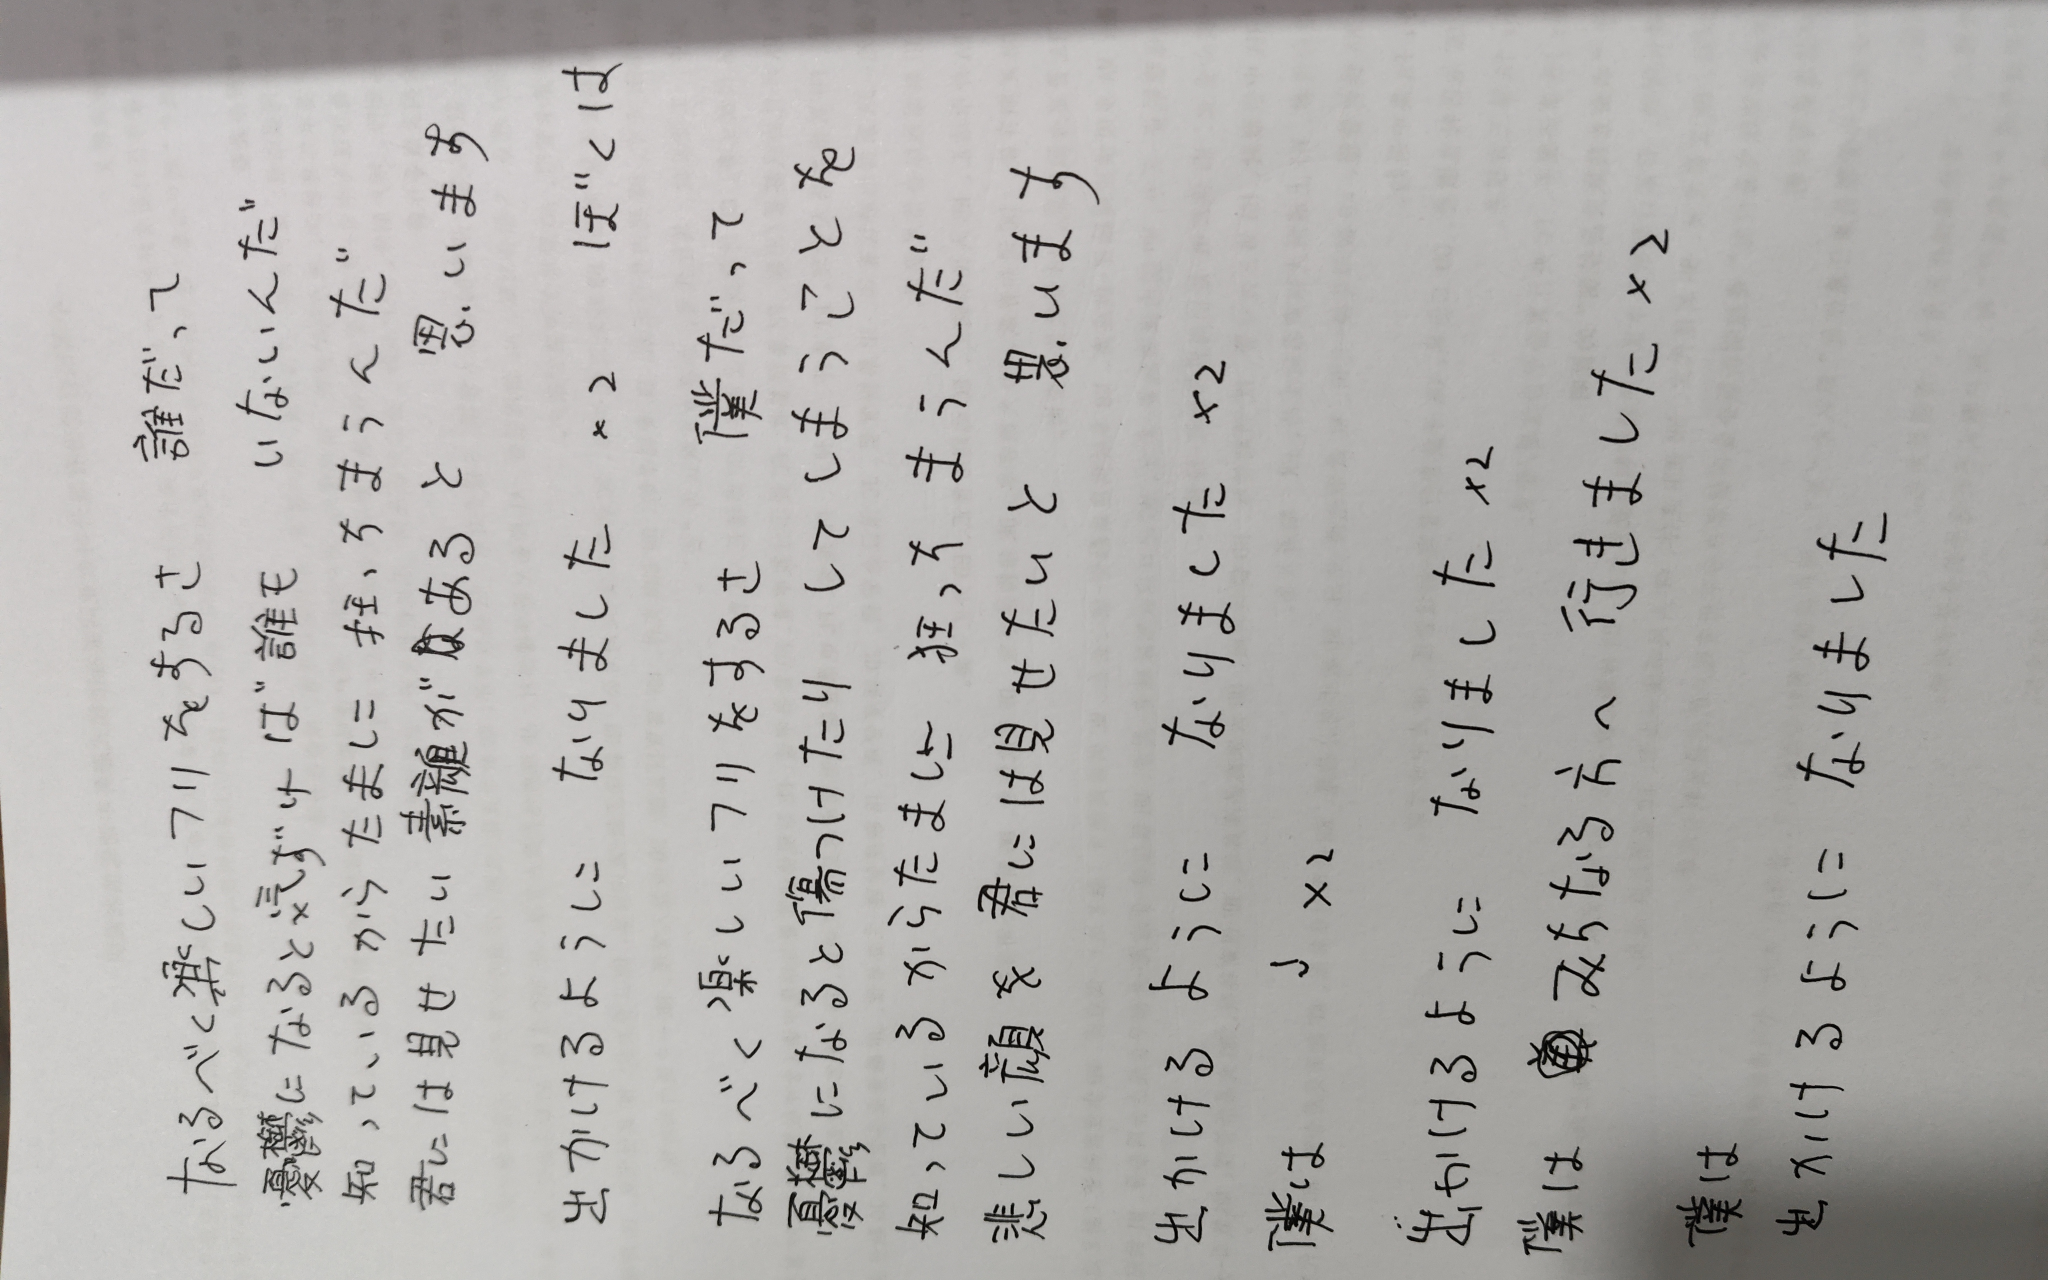 なるべく楽しいフリをするさ 誰だって
憂鬱になると気ずけば誰も いないんだ
知っているからたまに 狂っちまうんだ
君には見せたい素顔があると 思います
出かけるように なりました ×2 ぼくは
なるべく楽しいフリをするさ 僕だって
憂鬱になると傷つけたりしてしまうことを
知っているからたまに 狂っちまうんだ
悲しい顔を君には見せたいと 思います
出かけるように なりました ×2
僕は 〃 ×2
出かけるように なりました ×2
僕は みちなる方へ 行きました ×2
僕は
出かけるように なりました